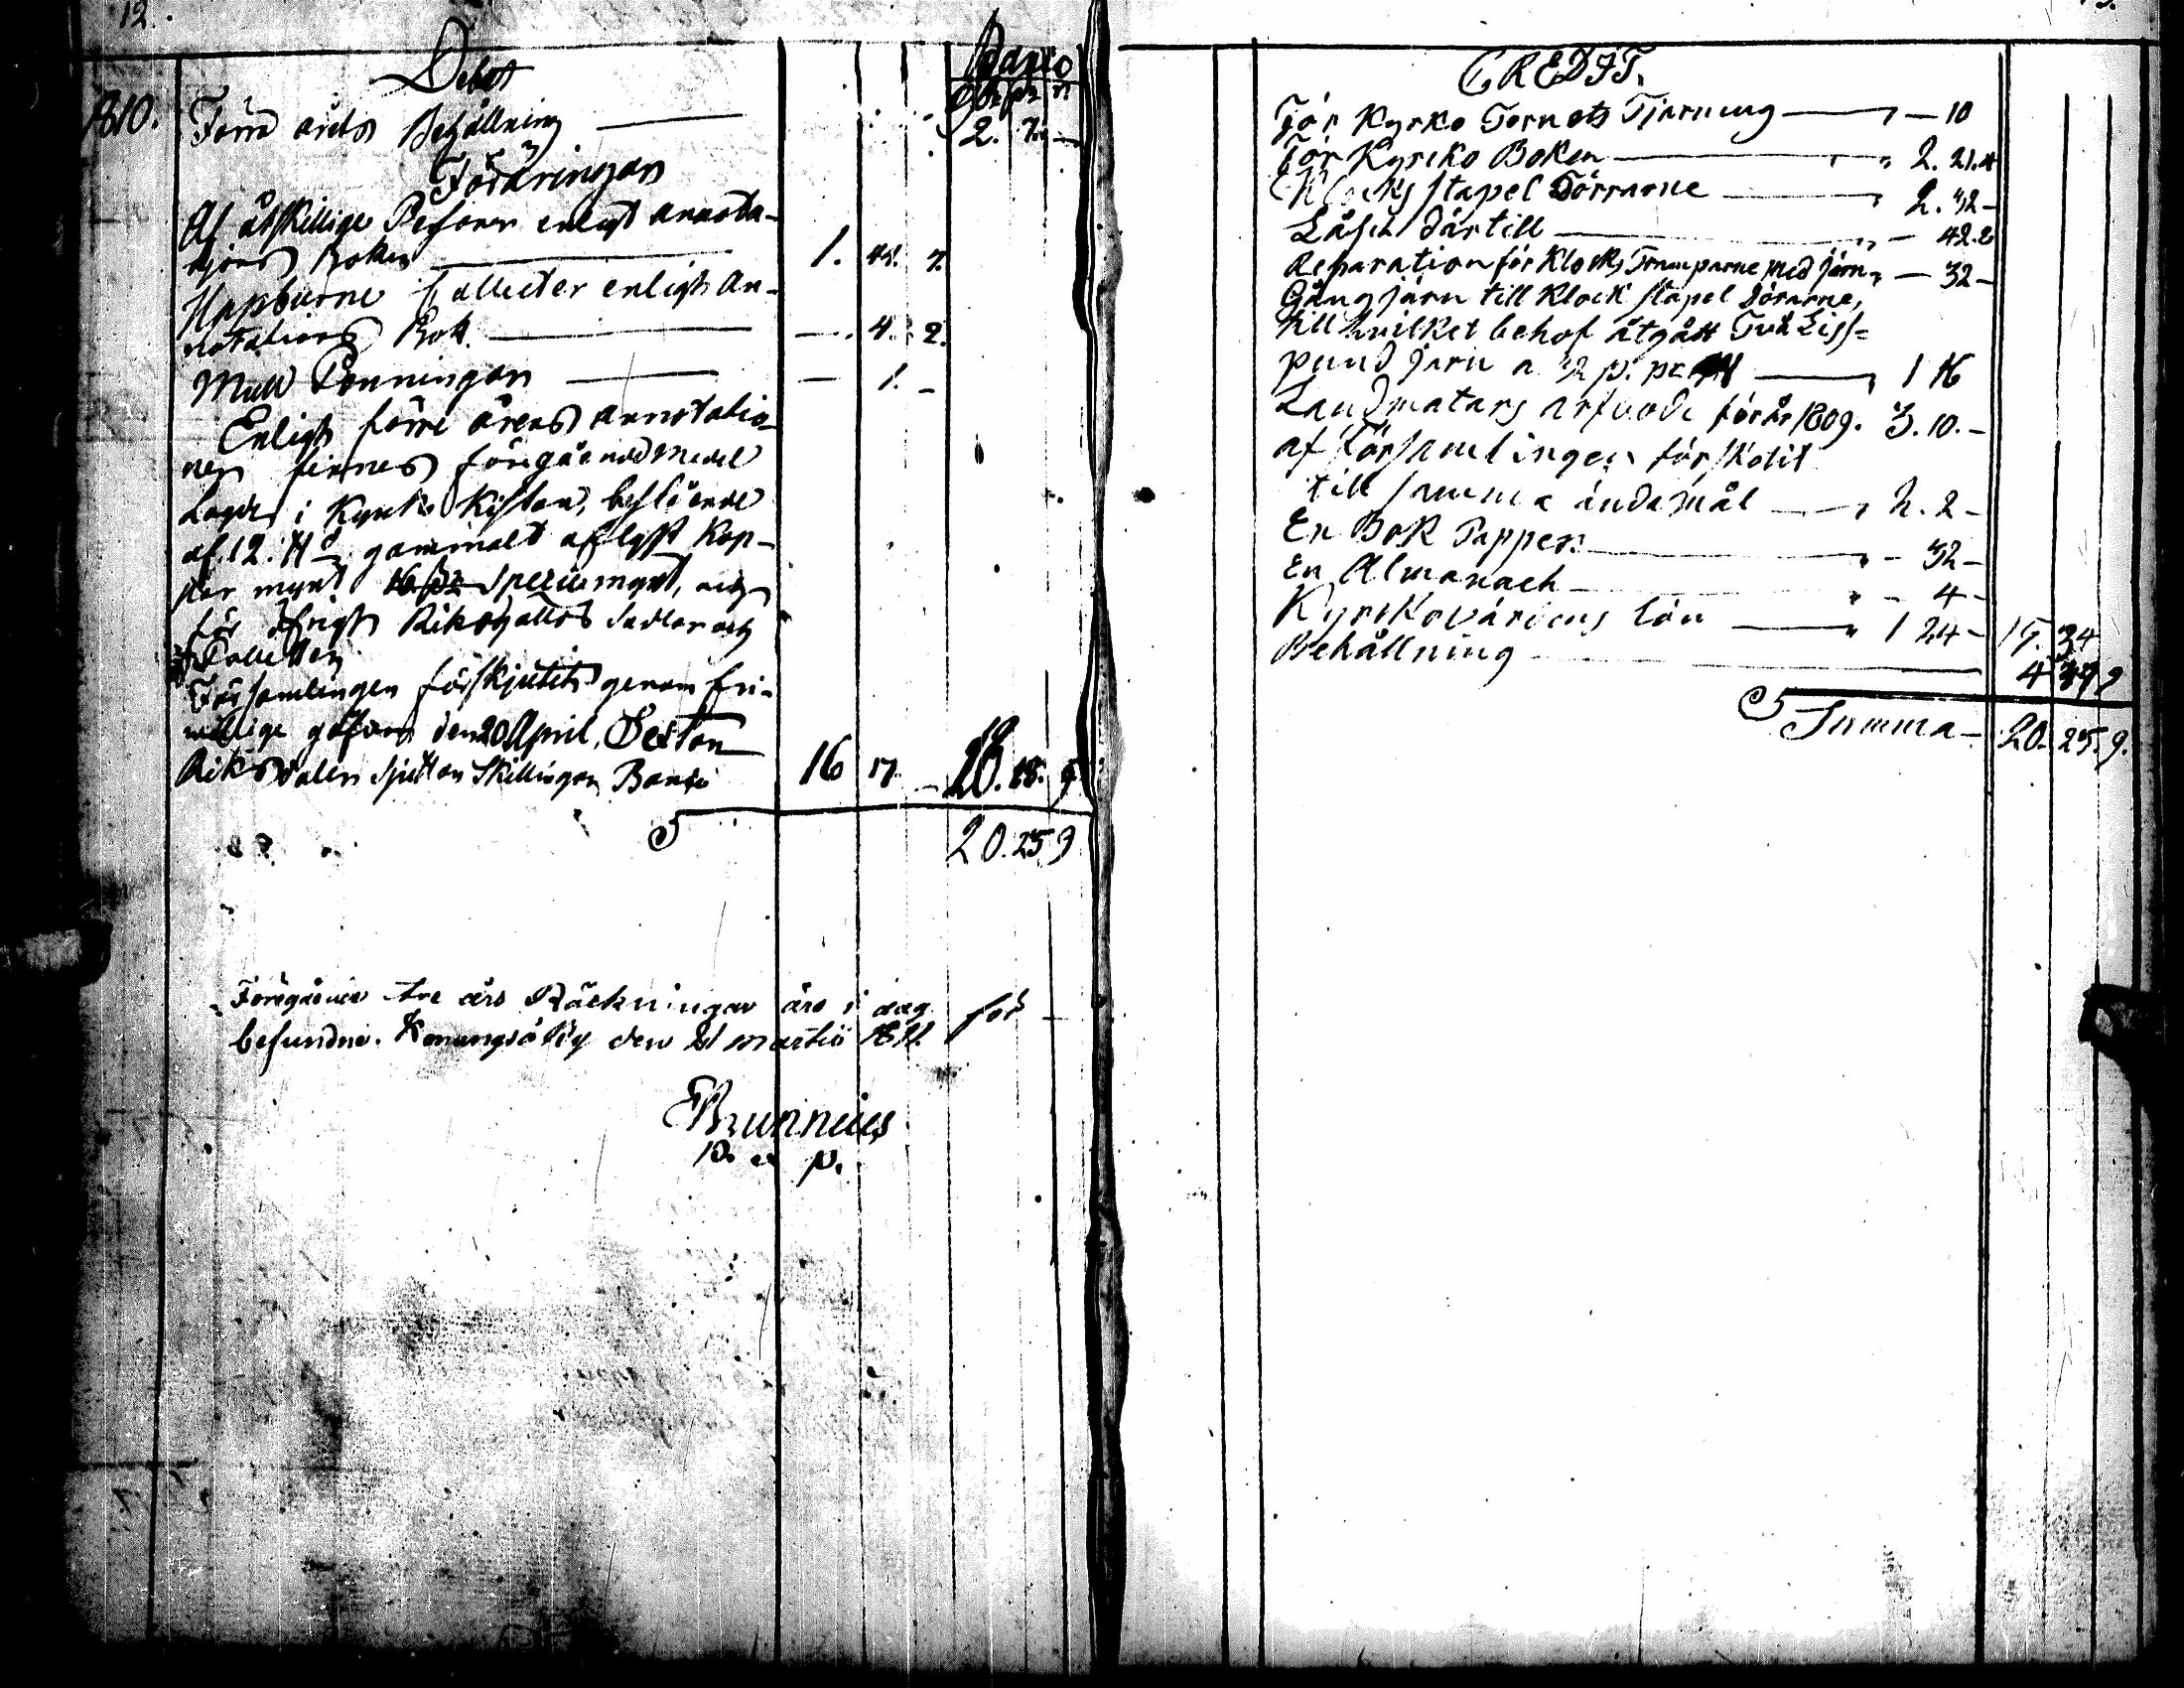 12.
Debet
Banco
1810. Förra årets Behållning — 2. 7. —
Föräringar
Af åtskillige Personer enligt annota-
tjons Boken — 1. 44. 7.
Uppburne Collecter enligt An-
notations Bok. — — 4. 2.
Mull Penningar — — 1. —
Enligt förre årens annotatio-
ner finnes föregående medel
Lagde i Kyrko Kistan, bestående
af 12. gammalt aflyst Kop-
par mynt 16 specie mynt, och
för öfrigt Riksgälds Sedlar och
Polletter
Församlingen förskjutit genom fri-
willige gåfvor den 20 April, Sexton
Riksdaler Sjutton Skillingar Banco 16 17 — 18. 18. 9
S 20. 25 9
Föregående tre års Räckningar äro i dag för
befundne. Konungsäby den 21 martii 1811.
Brunnius
P. e. p.
13.
CREDIT.
För Kyrko Tornets Tjärning — — 10
För Kyrcko Boken — 2. 21. 4
Klocks stapel Dörrarne — 2. 32 —
Låsen därtill — — 42. 8
Reparation för Klocks Tramparne med järn — 32 —
Gångjärn till Klock stapel Dörarne,
till hvilket behof åtgått Två Liss-
pund järn a — 1 16
Landmätars arfvode för år 1809. 3. 10. —
af Församlingen förskotit
till samma ändamål — 2. 2 —
En Bok Papper. — — 32 —
En Almanach — — 4 —
Kyrckovärdens lön — 1 24 — 15. 34
Behållning — 4 39 9
Summa — 20. 25. 9.